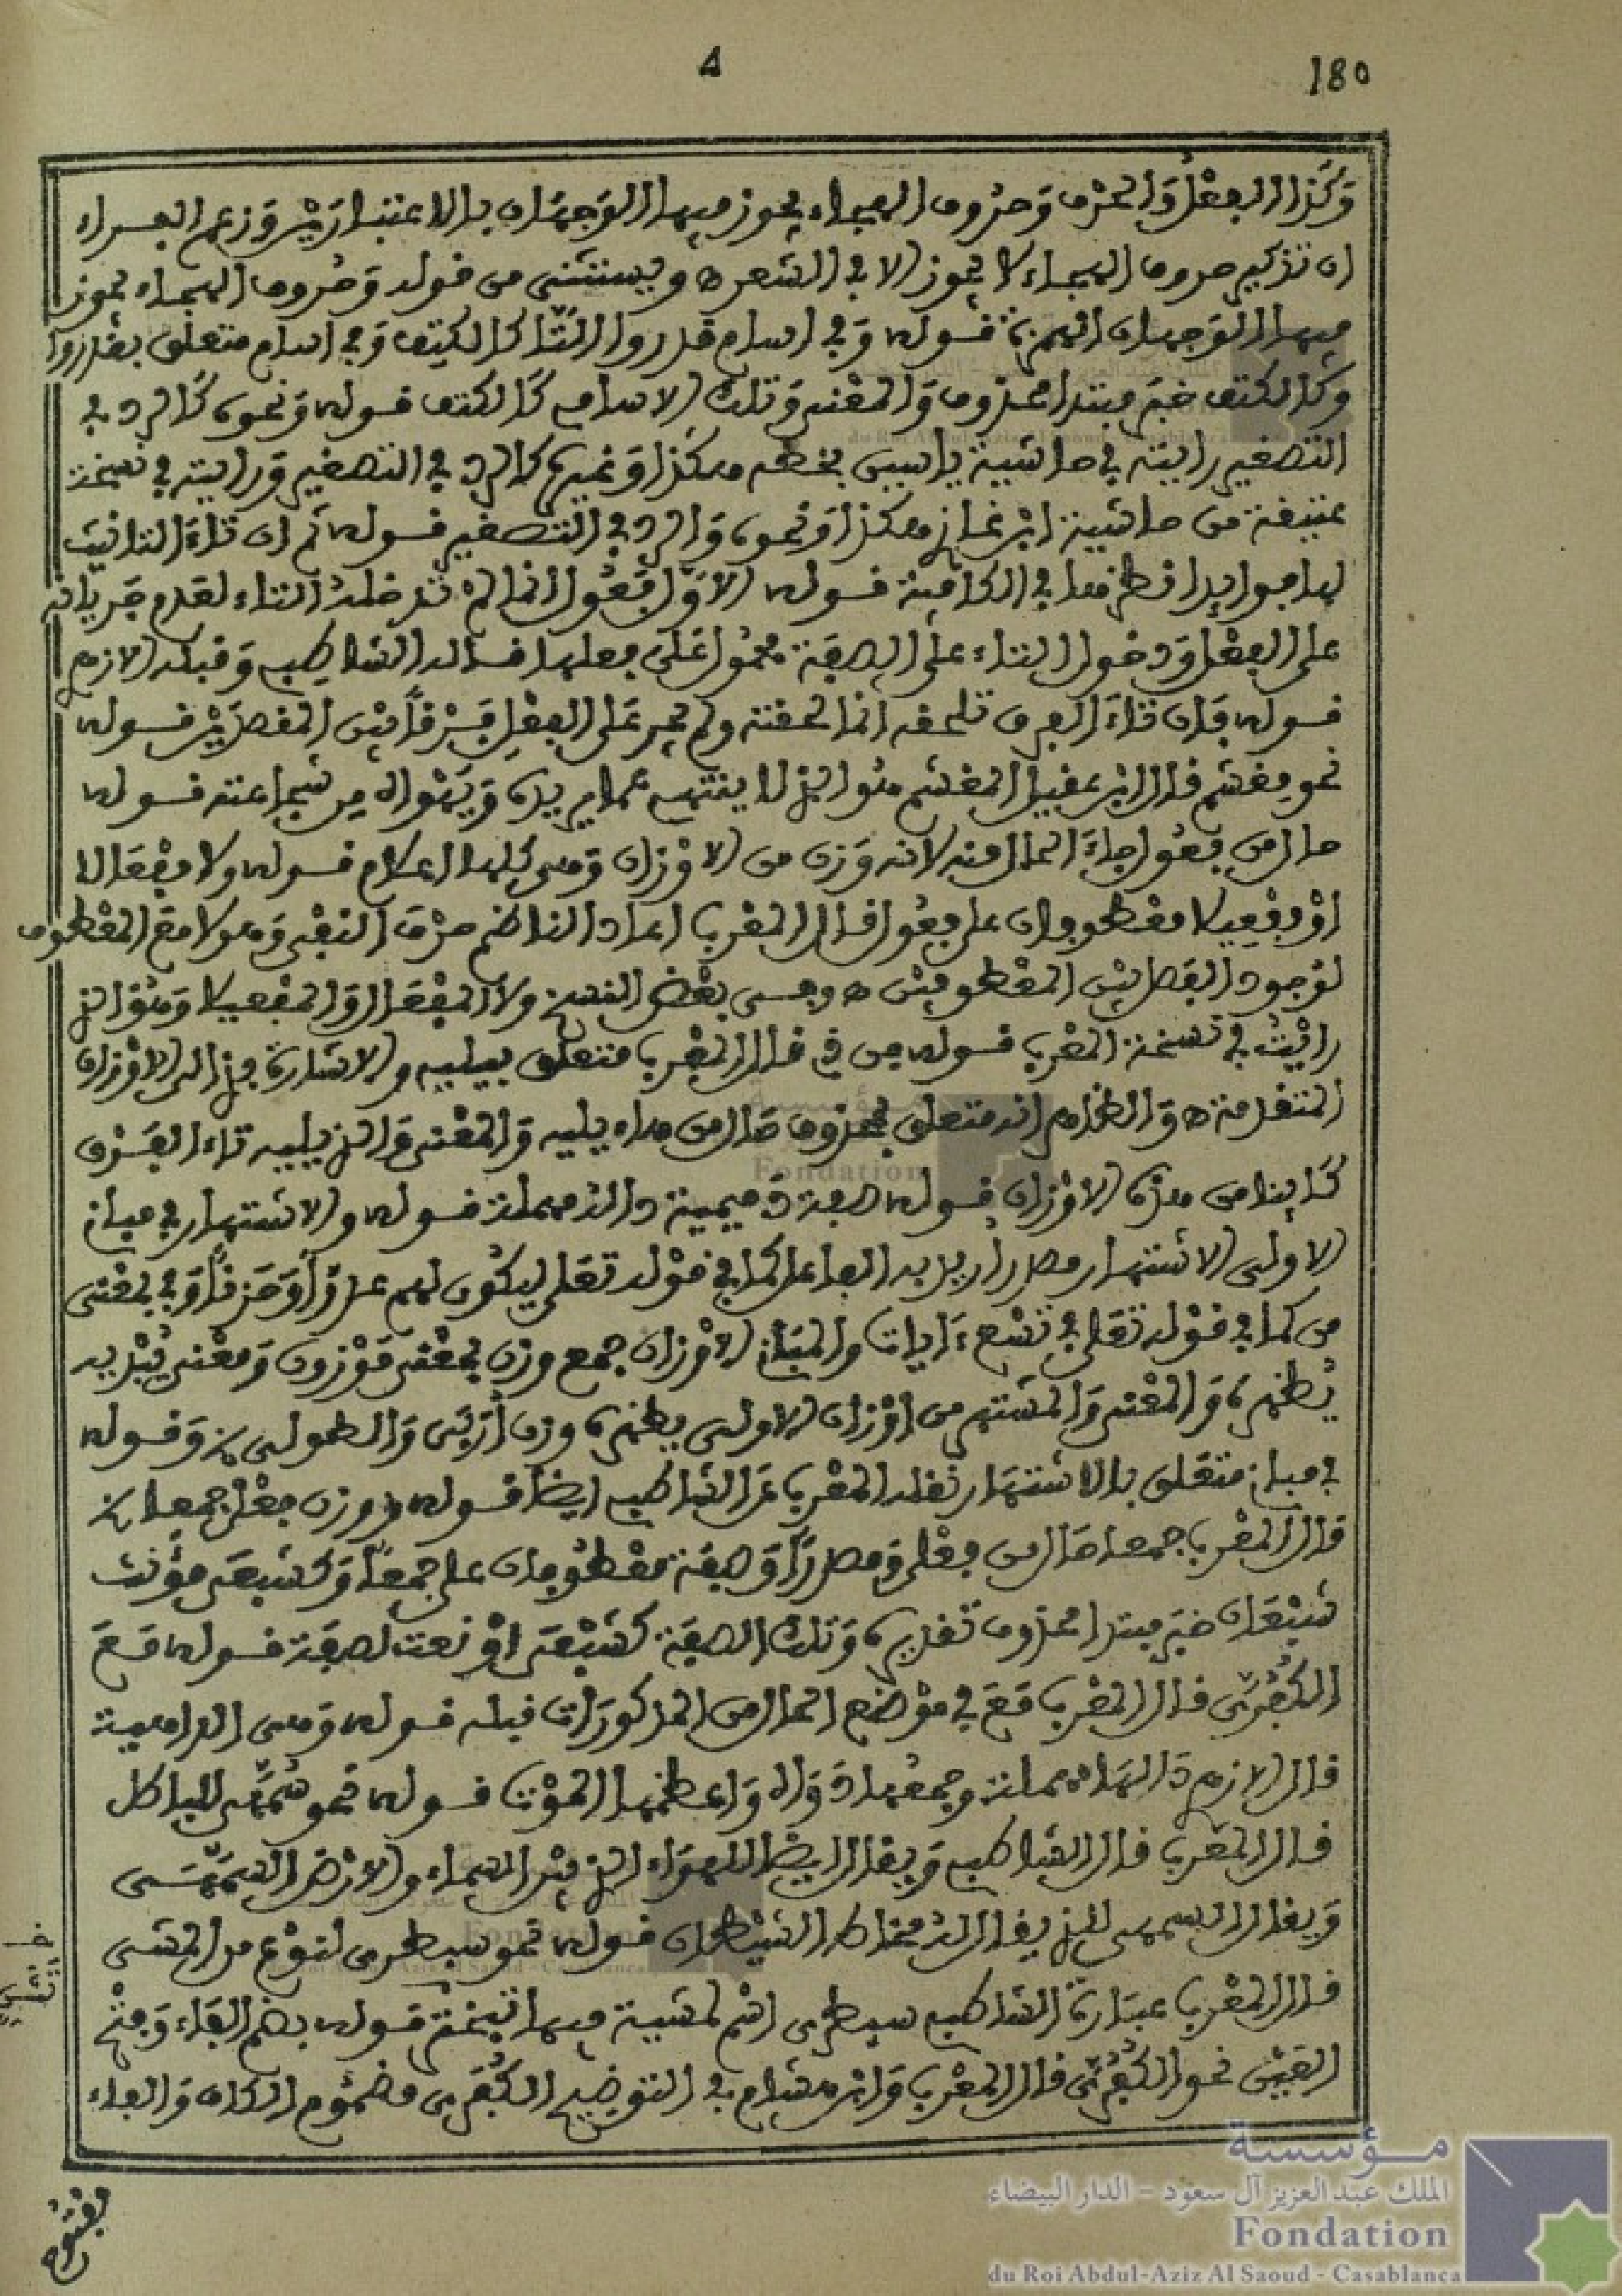 180
4
وَكَذا الفِعْلُ وَالحرْف وَحروف الهجاء يجوز فيها الوَجهَان بالاعتبارَيْن وَزعم الفراء
ان تذكير حروف الهجاء لا يجوز الا في الشعر ه ويستثنى من قوله وَحُروف الهجاء يجوز
فيها الوَجهان الهمزة قوله وَفي اسام قدروا التّا كالكتِف وَفي اسام متعلق بقدروا
وَكالكتف خبَر مبتدا محذوف وَالمعْنى وَتلك الاسامي كَالكتف قوله وَنحوه كَالرد في
التصغير رايته في حاشية ياسين بخطه هكذا وَنحوه كالرد في التصغير وَرايته في نسخة
عتيقة من حاشية ابن غازي هكذا وَنحوه وَالرد في التصغير قوله ثم ان تاءَ التانيث
لها فوايد انظرها في الكافية قوله الاوّل فَعُول انما لم تدخله التاء لعدم جَريانه
على الفِعْل وَدخول التاء على الصفة محمول عَلى فعلها قاله الشاطبي وَقبله الازهري
قوله فإن تاءَ الفرق تلحقه انما لحقته ولم يجر عَلى الفِعْل فَرْقاً بيْن المفصلَيْن قوله
نحو مغشم قال ابن عقيل المغشم هُو الذي لا ينتهي عما يريده وَيَهْواه مِن شجاعته قوله
حال من فَعُول جاءَ الحال منه لانه وَزن من الاوْزان وَهي كلها اعلام قوله ولا مِفْعَالا
اوْ مِفْعِيلا معْطوفان على فعُول قال المعْرب اعاد الناظم حرْف النفْي وَهو لا معَ المعْطوف
لوُجود الفصل بيْن المعْطوفيْن ه وفي بعْض النسخ ولا المِفْعَال وَالمِفْعيلا وَهُوَ الذي
رايْتُ في نسخة المعْرب قوله من ذي قال المعْرب متعلق بيليه والاشارة بذي الى الاوْزان
المتقدمة ه وَالظاهر انه متعلق بمحذوف حَال من هاء يليه وَالمعْنى وَالذي يليه تاء الفَرْق
كَاينا من هذه الاوْزان قوله صفة ذميمية داله مهملة قوله والاشتهار في مبان
الاولى الاشتهار مصدر اريد به الفاعل كما في قوْله تعَلى ليكُون لهم عدوّاً وَحَزَناً وَفي بمَعْنى
من كما في قوْله تعَلى في تسْع ءَايات والمبَاني الاوْزان جمع وزن بمعْنى مَوْزون وَمعْنى يُبْديه
يُظهره وَالمعْنى وَالمشتهر من اوْزان الاولى يظهره وزن أُرَبَى وَالطولى ز وَقوله
في مبان متعَلق بالاشتهَار نقله المعْرب عَن الشاطبي ايضاً قوله ووزن فعْلى جمعا ز
قال المعْرب جمعا حَال من فعْلى وَمصدرًا وَصفة معْطوفان على جمعًا وَكشبعَى مؤنث
شبْعَان خبَر مبتدا محذوف تقديره وَتلك الصفَة كشبْعَى اوْ نعت لصفة قوله مَعَ
الكُفُرَّى قال المعْرب مَعَ في موْضع الحال من المذكورَات قبله قوله وَهي الداهية
قال الازهري دالها مهملة وجمعها دَوَاه وَاعظمها الموْت قوله نحو سُمَّهى للباطل
قال المعْرب قال الشاطبي وَيقال ايضاً للهوَاء الذي بيْن السماء والارْض السمّهَى
وَيقال السمهى للذي يقال له مخاط الشيْطان قوله نحو سبطرى لنوْع من المشي
قال المعْرب عبَارة الشاطبي سبطرى اسْم لمشية فيها تبختر قوله بضم الفَاء وَفتْح
العَيْن نحو الكُفُرَّى قال المعْرب وَابن هشام في التوضيح الكُفرى مضْمُوم الكاف وَالفاء
مؤسسة
الملك عبد العزيز آل سعود - الدار البيضاء
Fondation
du Roi Abdul-Aziz Al Saoud - Casablanca